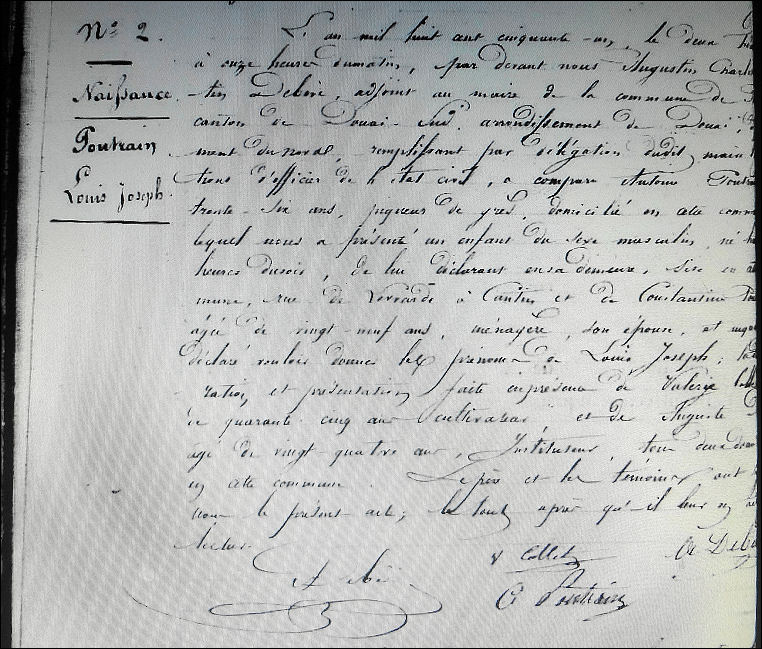 N° 2.
Naissance
Poutrain
Louis Joseph
L'an mil huit cent cinquante-un, le deux
à onze heures du matin, par devant nous Augustin Charles
Debève, adjoint au maire de la commune de
canton de Douai-Sud, arrondissement de Douai,
ment du nord, remplissant par délégation dudit maire
tions d'officier de l'état civil, a comparu Antoine Poutrain
trente-six ans, piqueur de grès, domicilié en cette comm
lequel nous a présenté un enfant du sexe masculin, né
heures du soir, de lui déclarant en sa demeure, sise en
mune, rue de à Cantin et de Constantine
âgée de vingt-neuf ans, ménagère, son épouse, et
déclaré vouloir donner les prénoms de Louis Joseph;
ration et présentation faite en présence de Valéry
de quarante cinq ans cultivateur, et de Auguste
âgé de vingt quatre ans, Instituteur, tous deux
en cette commune. Le père et les témoins ont
nous le présent acte; le tout après qu'il leur en
lecture.
V Collet
A Poutrain